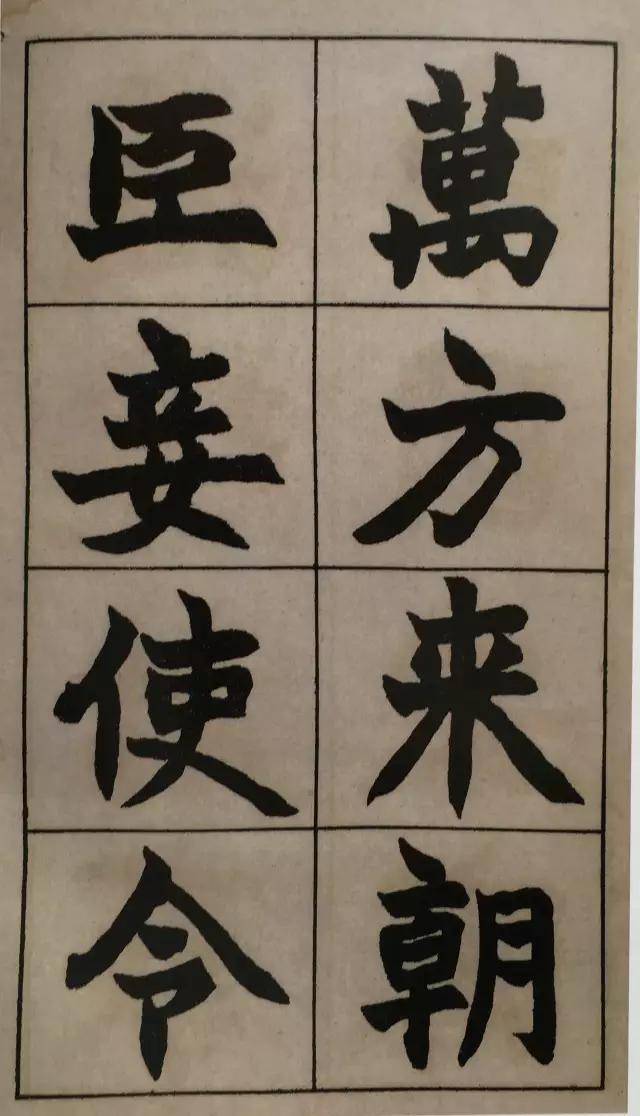 萬方来朝
臣妾使令